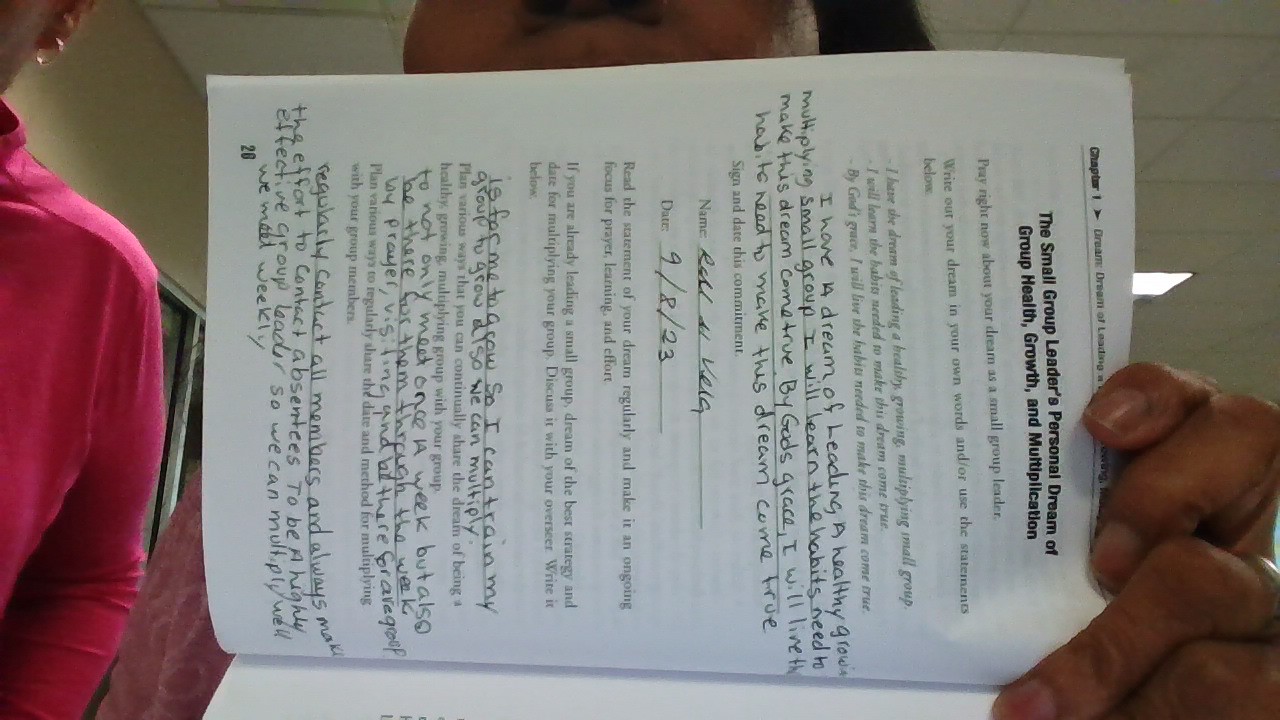 Chapter 1 ➤ Dream: Dream of Leading a
The Small Group Leader's Personal Dream of
Group Health, Growth, and Multiplication
Pray right now about your dream as a small group leader.
Write out your dream in your own words and/or use the statements
below.
- I have the dream of leading a healthy, growing, multiplying small group.
- I will learn the habits needed to make this dream come true.
- By God's grace, I will live the habits needed to make this dream come true.
I have A dream of Leading A healthy growin
multiplying small group I will learn the habits need to
make this dream come true By Gods grace, I will live th
habits need to make this dream come true
Sign and date this commitment.
Name:
Date: 9/8/23
Read the statement of your dream regularly and make it an ongoing
focus for prayer, learning, and effort.
If you are already leading a small group, dream of the best strategy and
date for multiplying your group. Discuss it with your overseer. Write it
below.
is for me to grow so I can train my
group to grow also we can multiply.
Plan various ways that you can continually share the dream of being a
healthy, growing, multiplying group with your group.
to not only meet once A week but also
be there for them through the week
by prayer, visiting and be there for a group
Plan various ways to regularly share the date and method for multiplying
with your group members.
regularly contact all members and always make
the effort to contact absentees To be A highly
effective group leader so we can multiply well
we meet weekly
20